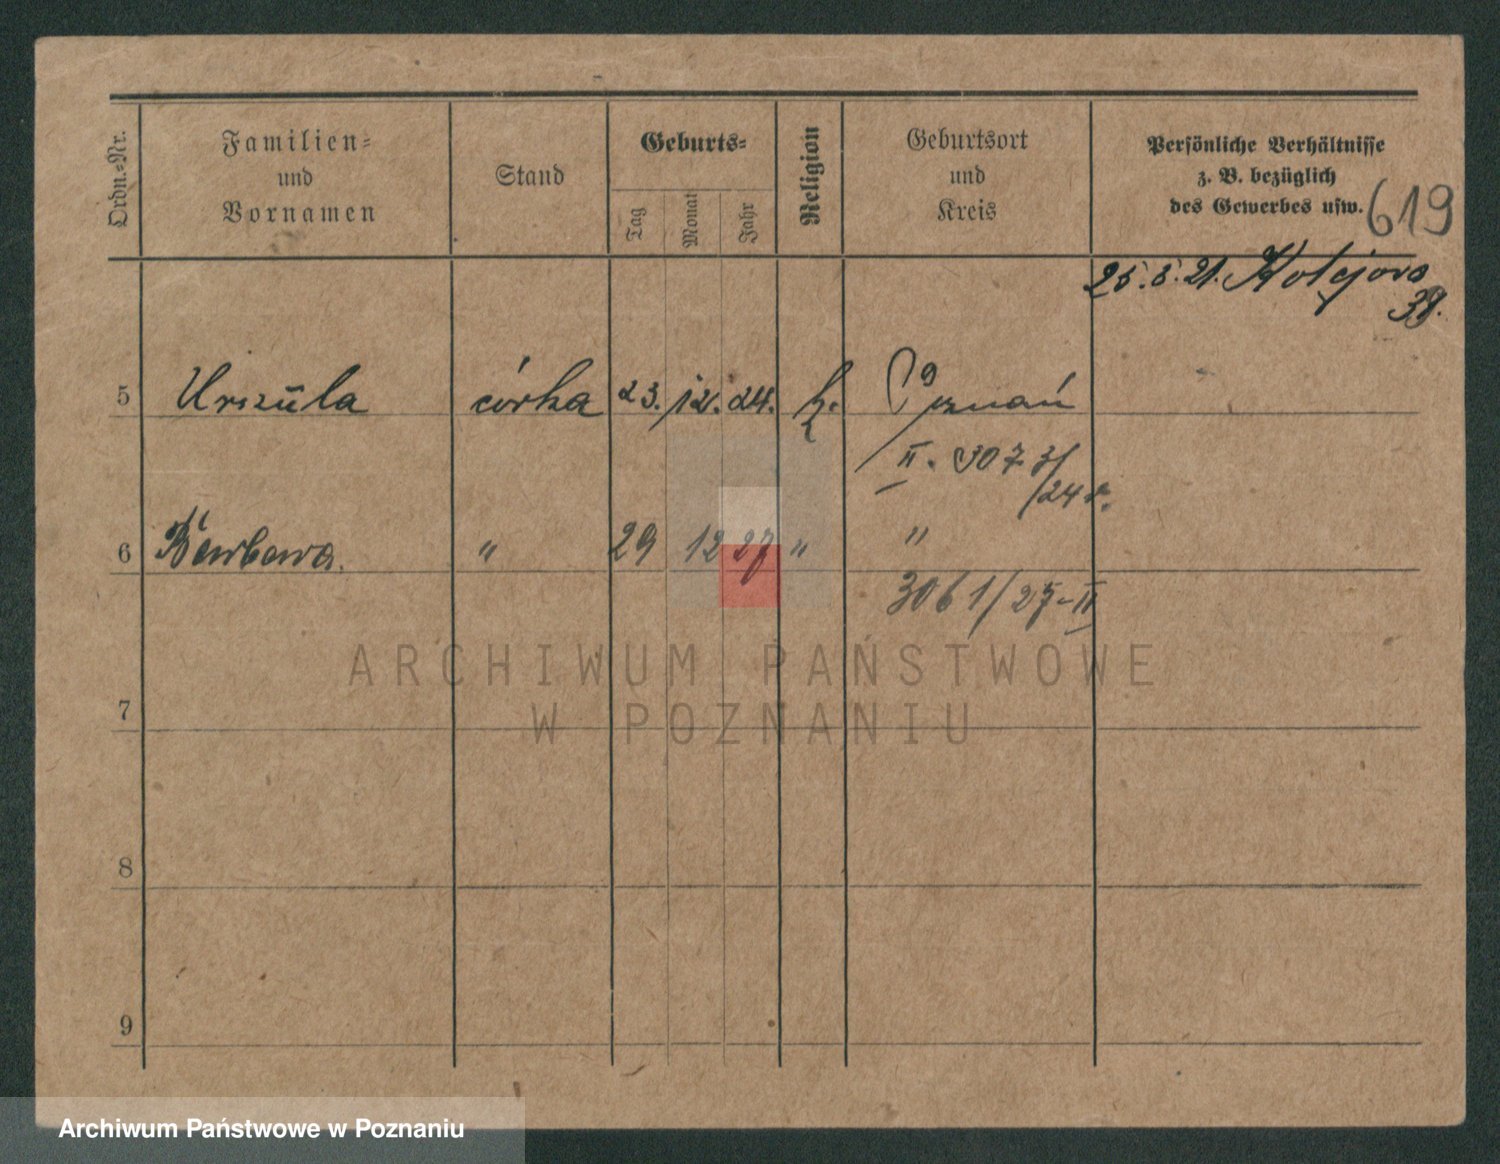 Ordn.-Nr.
Familien-
und
Vornamen
Stand
Geburts-
Tag
Monat
Jahr
Religion
Geburtsort
und
Kreis
Persönliche Verhältnisse
z. B. bezüglich
des Gewerbes usw.
619
25.5.21.
39.
5 Urszula córka 23. 12. 24. k. Poznań
II. 3073/
/24 r.
6 Barbara. " 29 12 27 " "
3061/27-II
7
8
9
ARCHIWUM PAŃSTWOWE
W POZNANIU
Archiwum Państwowe w Poznaniu